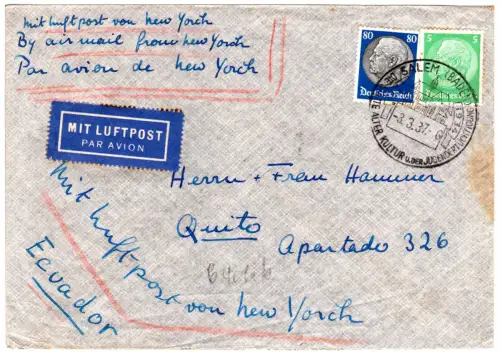 Mit Luftpost von New Yorch
By air mail from New Yorch
Par avion de New Yorch
80 80 5 5
Deutsches Reich
MIT LUFTPOST
PAR AVION
SALEM (BADEN)
-3.3.37.-
ALTER KULTUR U. DER JUGENDERTÜCHTIGUNG
Herrn + Frau Hammer
Quito
Apartado 326
Mit Luftpost von New Yorch
Ecuador